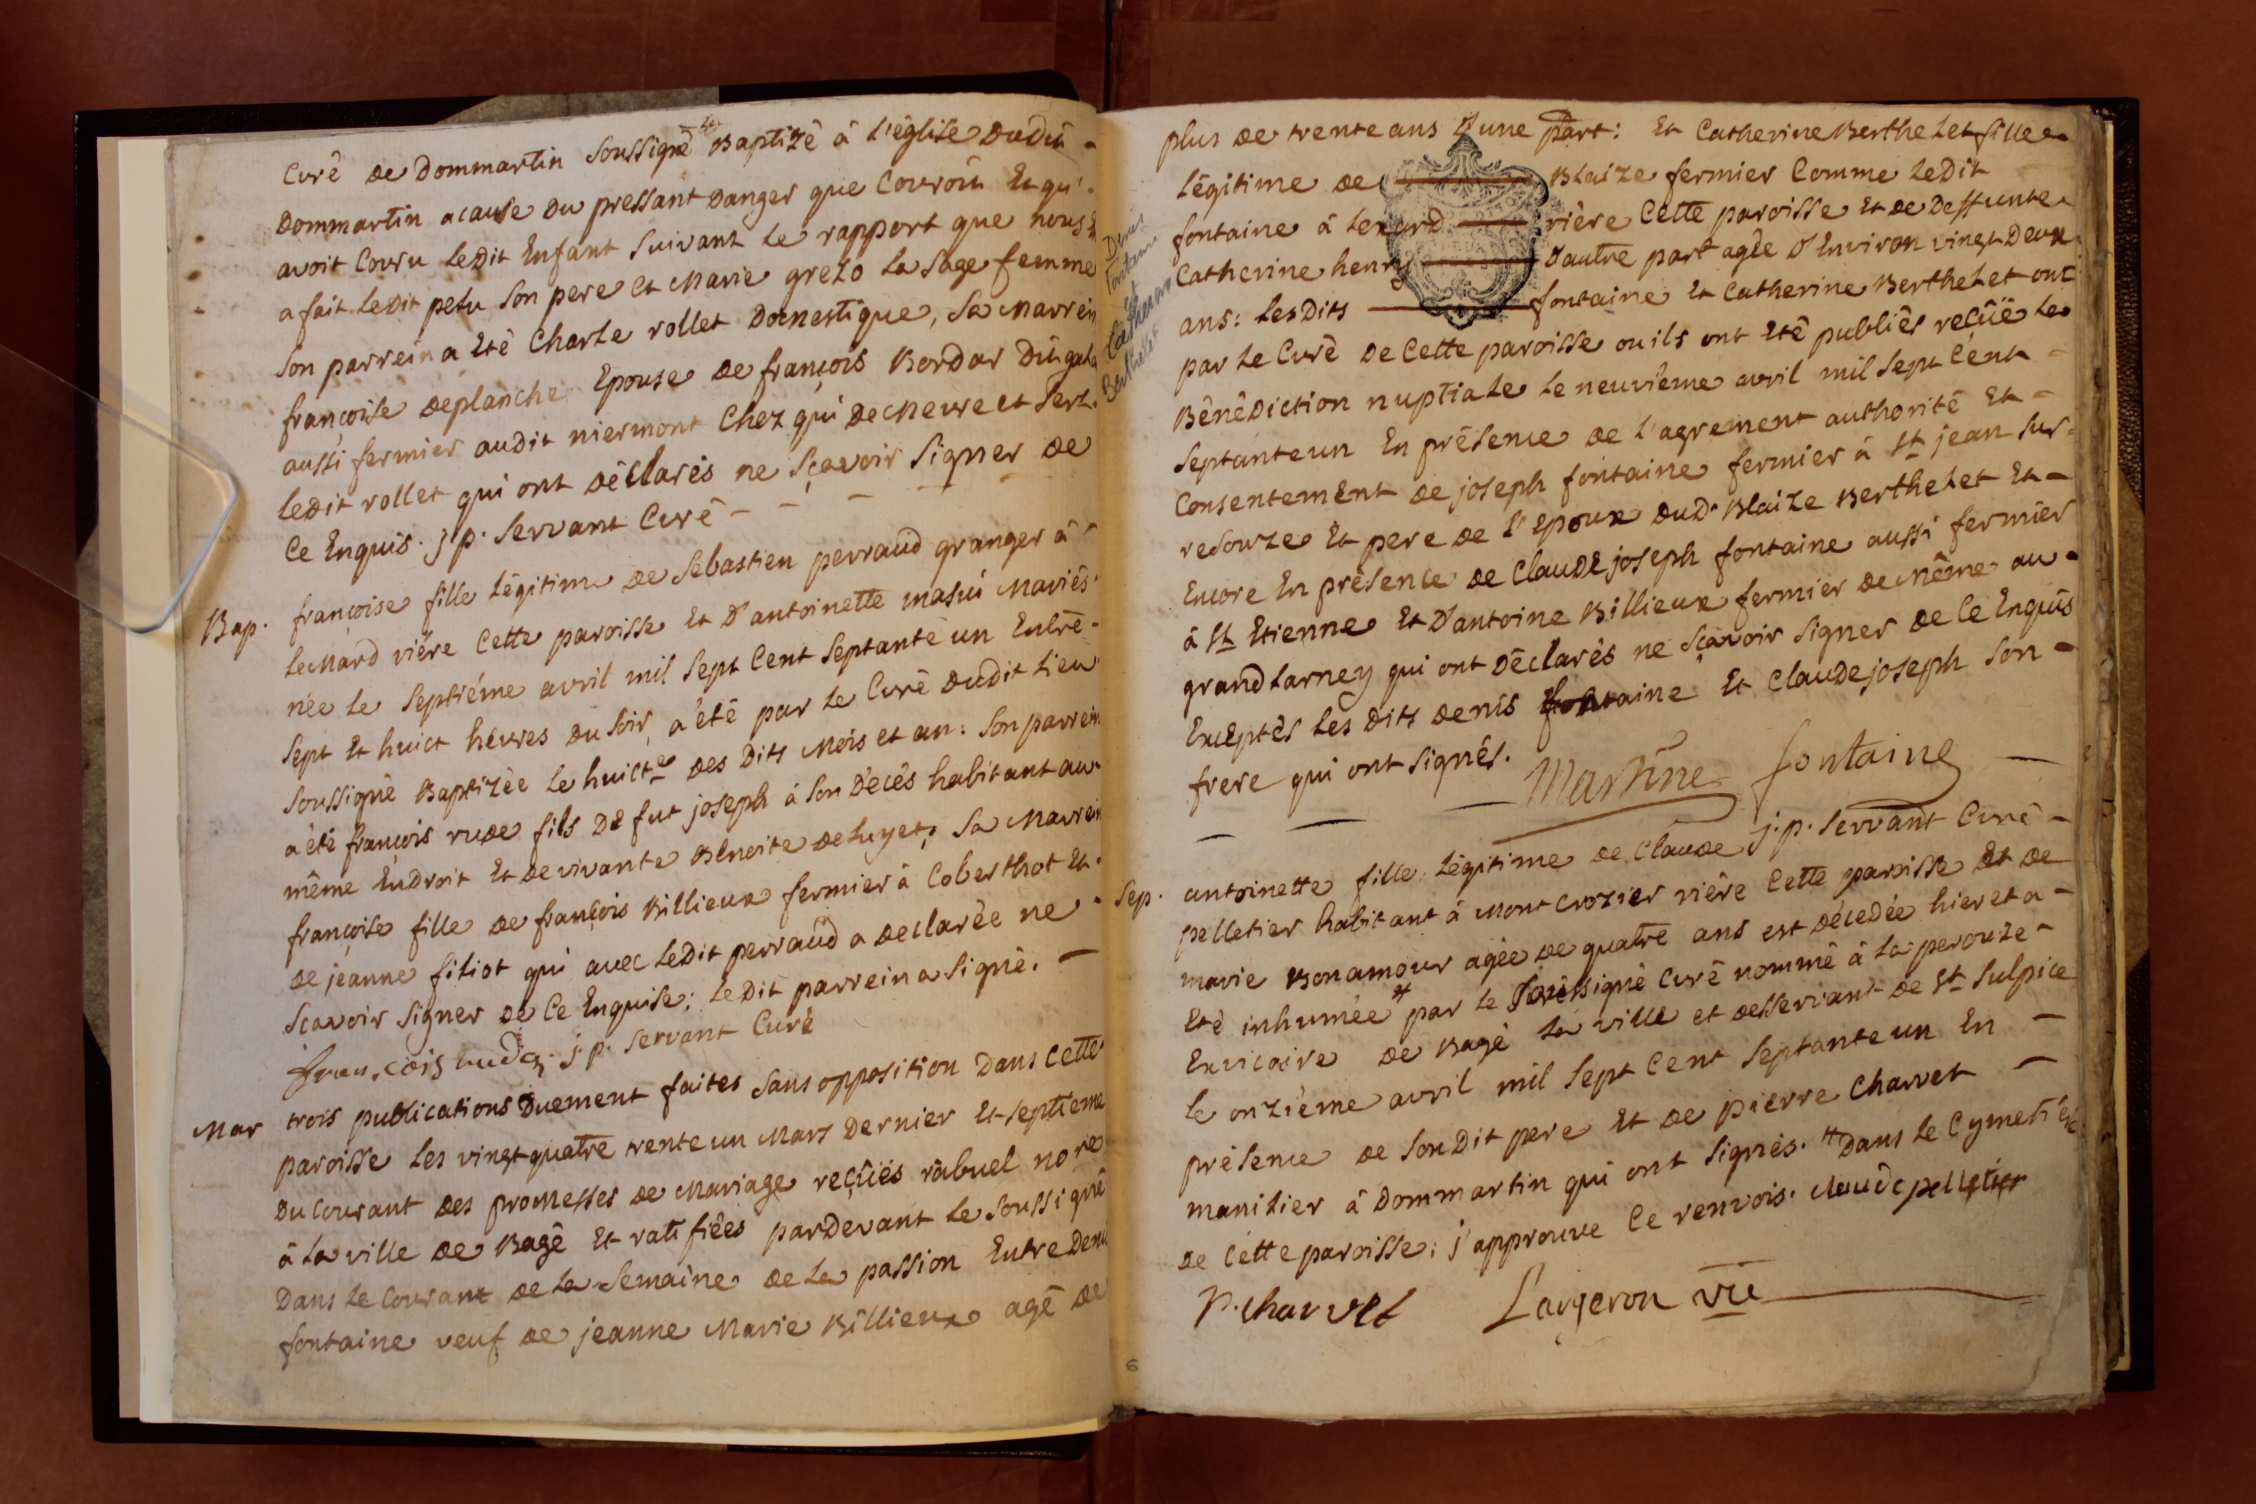 Curé de Dommartin soussigné Baptizé à l'église dudit
Dommartin a cause du pressant danger que couroit et qu'
avoit couru ledit Enfant suivant le rapport que nous
a fait ledit petu son pere et Marie grezo la sage femme
son parrein a eté Charle rollet Domestique, sa marrein
françoise deplanche Epouse de françois Bordar dit
aussi fermier audit niermont chez qui demeure et sert
ledit rollet qui ont déclarés ne sçavoir signer de
ce Enquis. j p. Servant Curé
Bap. françoise fille légitime de Sebastien perraud granger à
lemard rière cette paroisse et d'antoinette masui mariés
née le septiéme avril mil sept cent septante un Entre
sept et huict heures du soir, a été par le Curé dudit lieu
soussigné Baptizée le huict.e des dits mois et an: son parrein
a été françois rude fils de fut joseph à son décès habitant au
même Endroit et de vivante Benoite deluyet; sa marrein
françoise fille de françois Billieux fermier à Coberthot et
de jeanne filiot qui avec ledit perraud a declarée ne
sçavoir signer de ce Enquise; ledit parrein a signé.
françois rude j. p. Servant Curé
Mar trois publications duement faites sans opposition dans cette
paroisse les vingt quatre trente un mars dernier et septieme
du courant des promesses de mariage reçûës rabuel no.re
à la ville de Bagé et ratifiées pardevant le soussigné
dans le courant de la semaine de la passion Entre Denis
fontaine veuf de jeanne Marie Billieux agé de
Denis
fontaine
et
Catherine
Berthelet
plus de trente ans d'une part: et Catherine Berthelet fille
légitime de Blaize fermier comme ledit
fontaine à lemard rière cette paroisse et de deffunte
Catherine henry d'autre part agée d'Environ vingt deux
ans: les dits fontaine et Catherine Berthelet ont
par le Curé de cette paroisse ou ils ont eté publiés reçûë la
Bénédiction nuptiale le neuviême avril mil sept cent
septante un En présence de l'agrement authorité et
consentement de joseph fontaine fermier à St jean sur
resouze et pere de l'epoux dud. Blaize Berthelet et
Encore En présence de Claude joseph fontaine aussi fermier
à St Etienne et d'antoine Billieux fermier de même au
grand larney qui ont déclarés ne sçavoir signer de ce Enquis
Exceptés les dits denis fontaine et Claude joseph son
frere qui ont signés.
Martine fontaine
j. p. Servant Curé
Sep. antoinette fille légitime de Claude
pelletier habitant à mont crozier rière cette paroisse et de
marie Bonamour agée de quatre ans est décedée hier et a
eté inhumée # par le soussigné Curé nommé à la perouze
Exvicaire de Bagé la ville et desservant de St Sulpice
le onziéme avril mil sept cent septante un En
présence de son dit pere et de pierre Charvet
manilier à Dommartin qui ont signés. # dans le Cymetiére
de cette paroisse; j'approuve ce renvois. claude pelletier
P. charvet Largeron vic
6